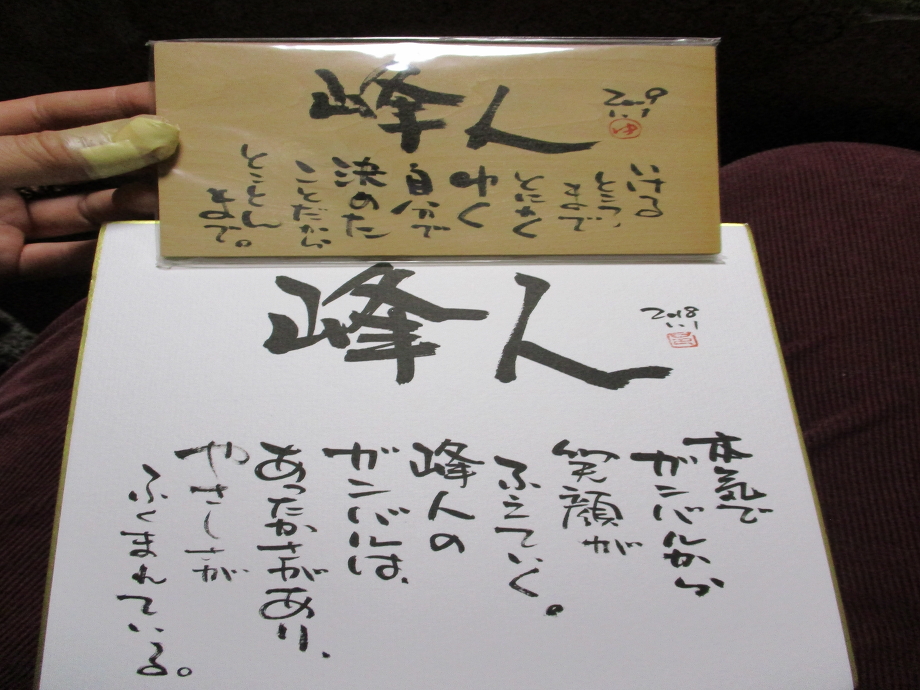 峰人
2019
1.1
ゆ
いける
ところ、
まで
とにかく
ゆく
自分で
決めた
ことだから
とことん
まで。
峰人
2018
1.1
本気で
ガンバルから
笑顔が
ふえていく。
峰人の
ガンバルは、
あったかさがあり、
やさしさが
ふくまれている。